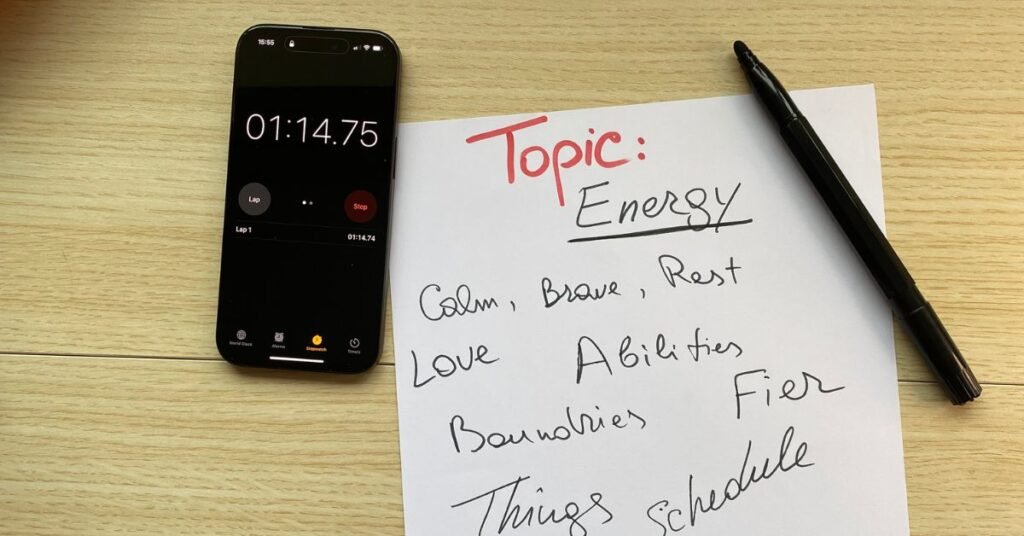 15:55
01:14.75
Lap Stop
Lap 1 01:14.74
World Clock Alarms Stopwatch Timers
Topic:
Energy
Calm, Brave, Rest
Love Abilities
Boundries Fier
Things schedule